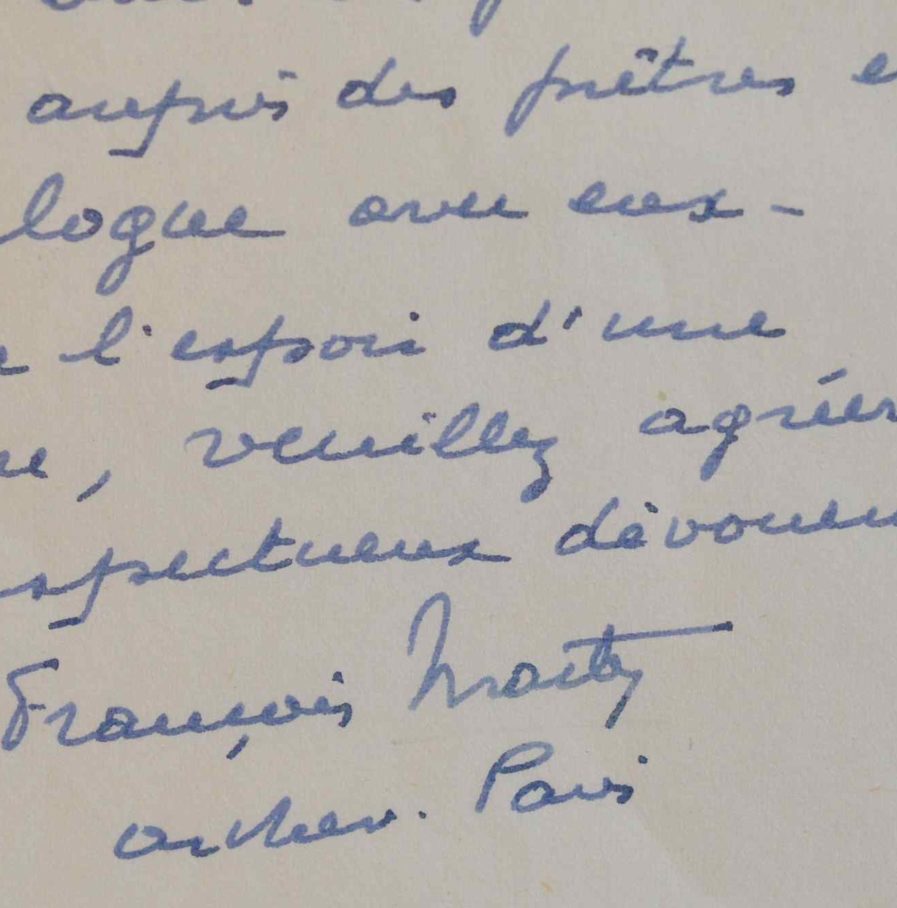 auprès des prêtres e
logue avec eux -
e l'espoir d'une
ue, veuillez agréer
spectueux dévouem
François Marty
archev. Paris